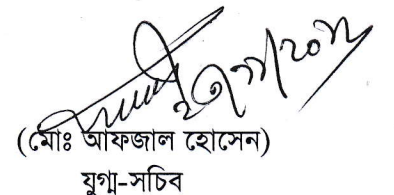 (মোঃ আফজাল হোসেন)
যুগ্ম-সচিব